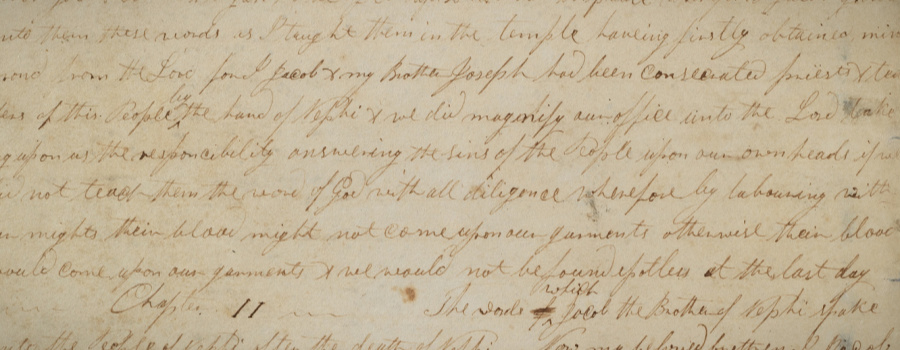 unto them these words as I taught them in the temple haveing firstly obtained mine
from the Lord for I Jacob & my Brother Joseph had been consecrated priests &
of this People by the hand of Nephi & we did magnify our office unto the Lord take
upon us the responcibility answering the sins of the People upon our own heads if we
not teach them the word of God with all diligence wherefore by labouring with
mights their blood might not come upon our garments otherwise their blood
would come upon our garments & we would not be found spotless at the last day
Chapter II The words which Jacob the Brother of Nephi spake
the People of Nephi after the death of Nephi Now my beloved brethren I Jacob